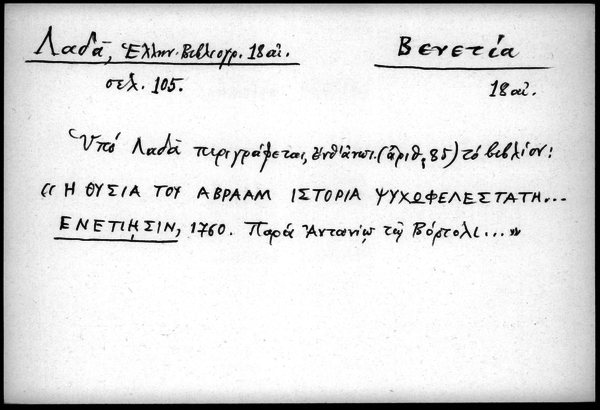 Λαδᾶ, Ἑλλην. Βιβλιογρ. 18 αἰ.
Βενετία
σελ. 105.
18 αἰ.
Ὑπό Λαδᾶ περιγράφεται, ἔνθ' ἀνωτ. (ἀριθ, 85) τό βιβλίον:
«Η ΘΥΣΙΑ ΤΟΥ ΑΒΡΑΑΜ ΙΣΤΟΡΙΑ ΨΥΧΩΦΕΛΕΣΤΑΤΗ...
ΕΝΕΤΙῌΣΙΝ, 1760. Παρά Ἀντωνίῳ τῷ Βόρτολι...»